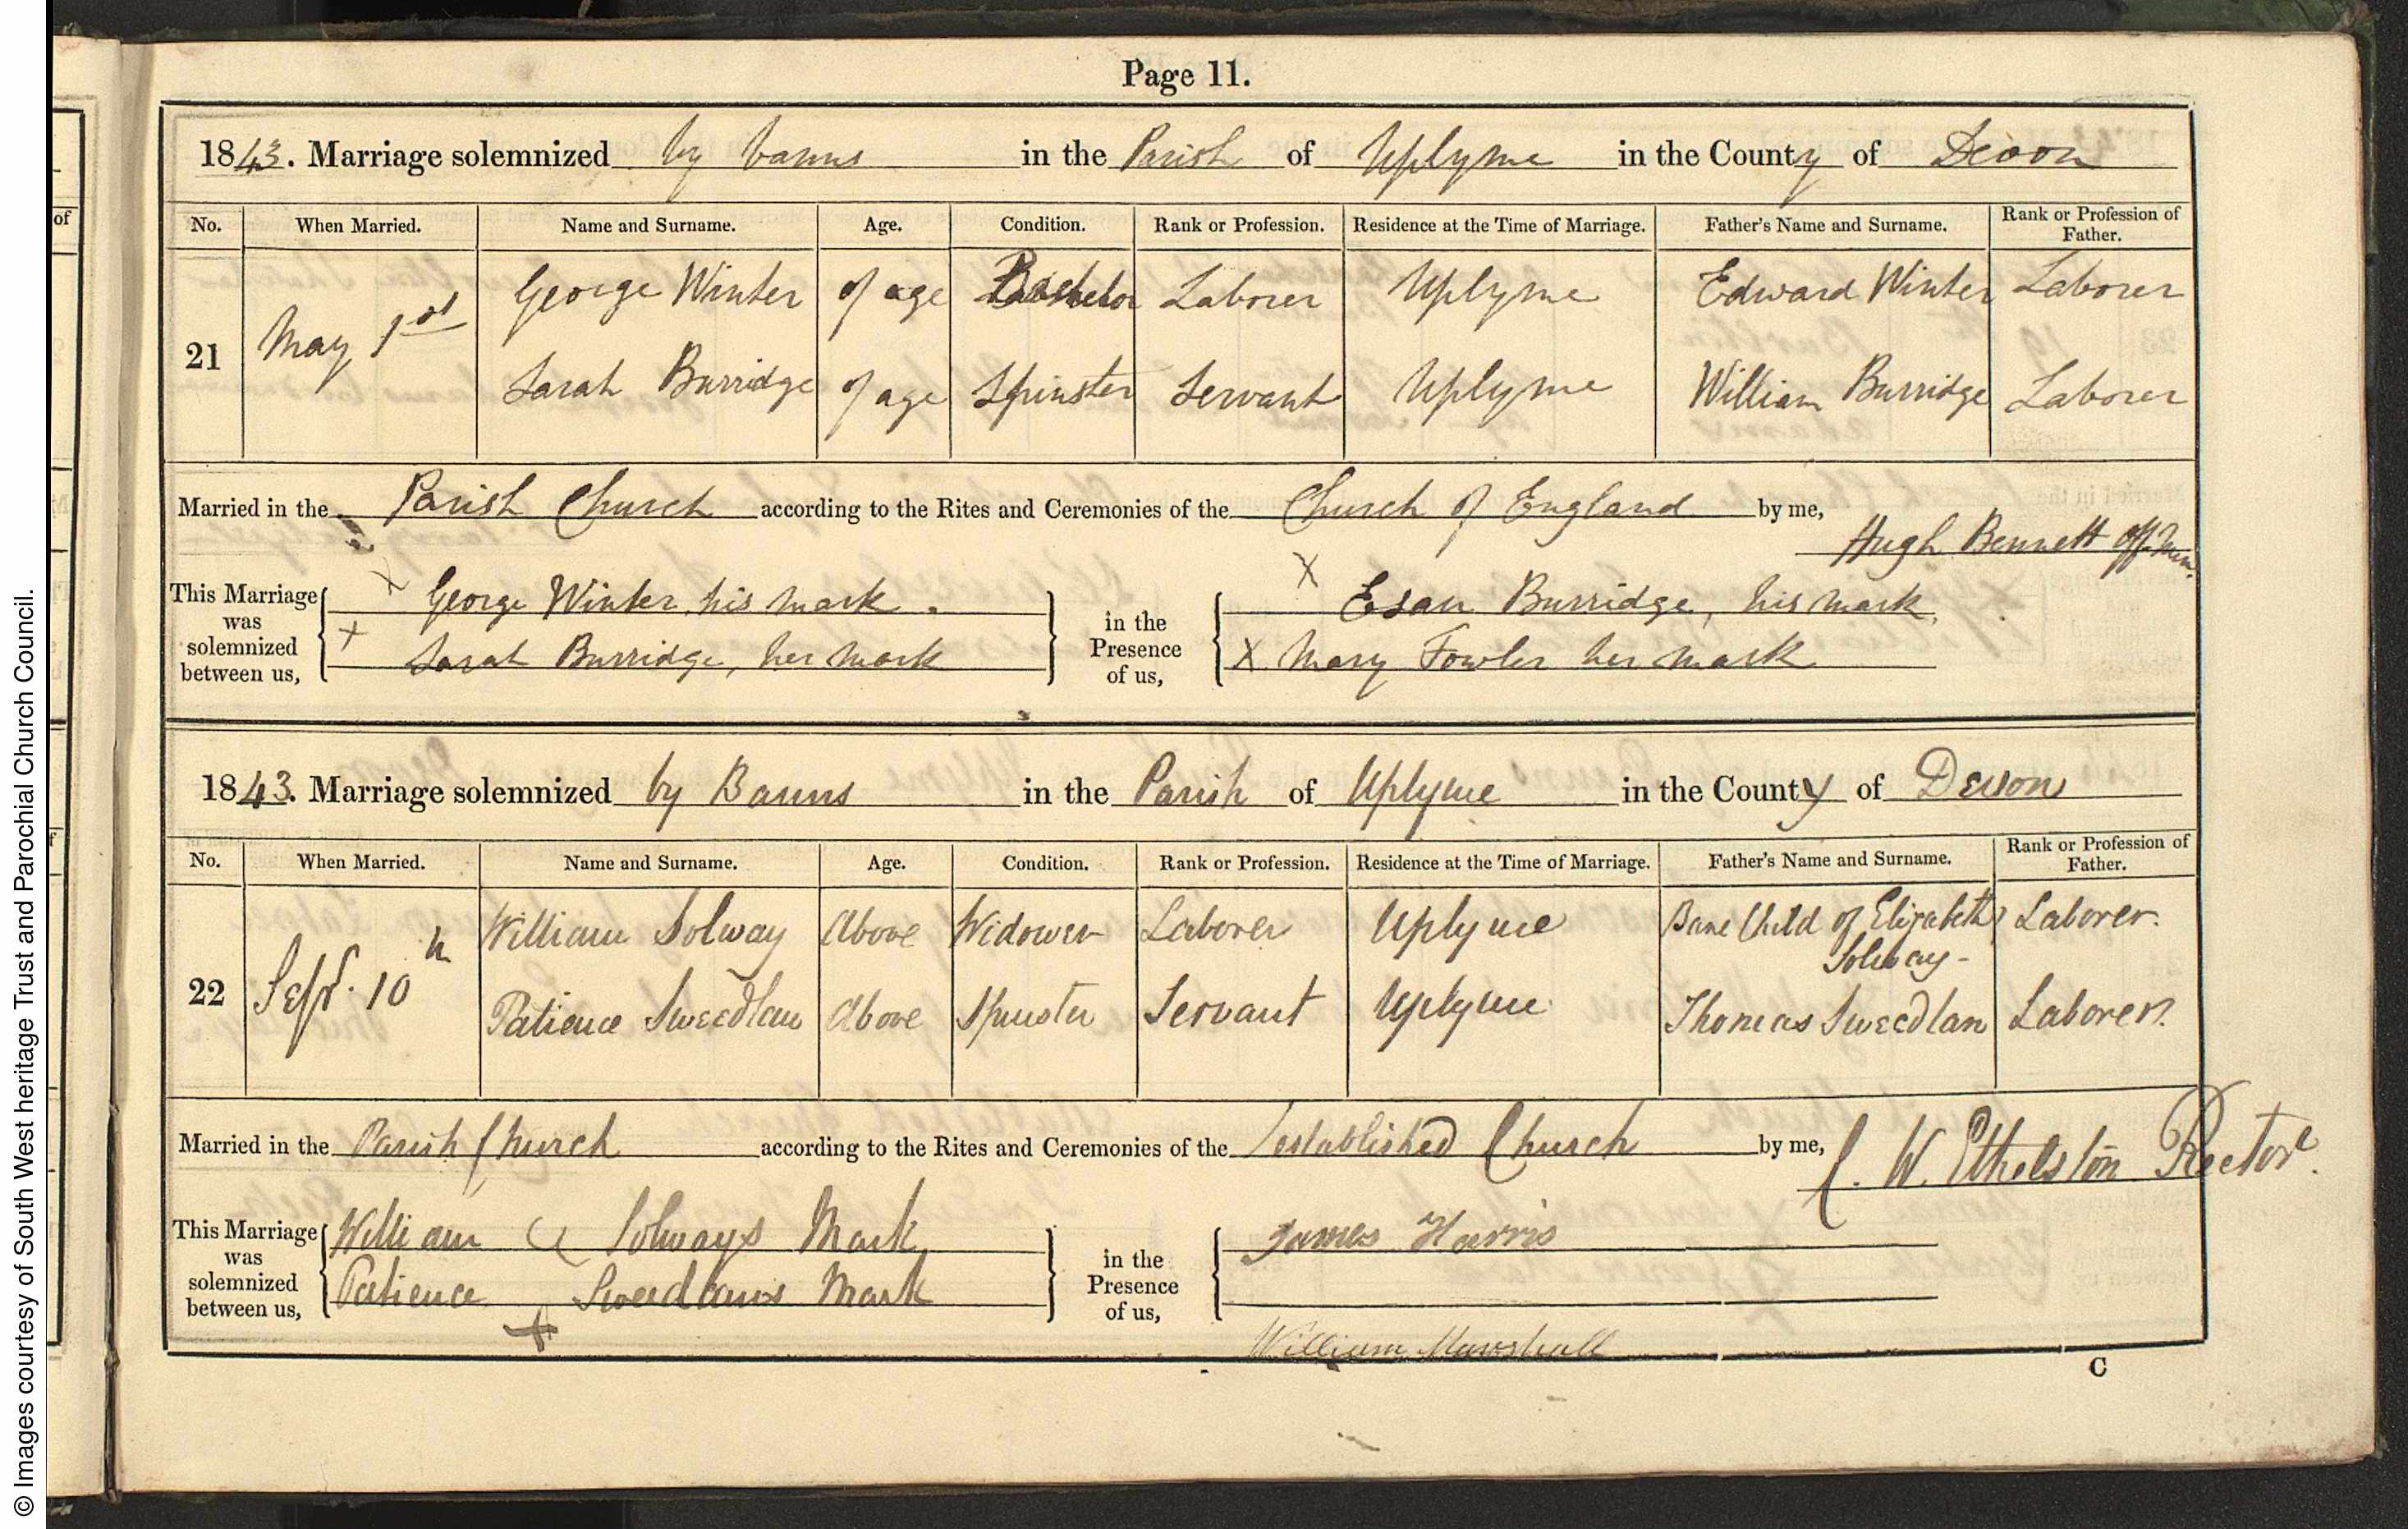 Page 11.
1843. Marriage solemnized by banns in the Parish of Uplyme in the County of Devon
No. When Married. Name and Surname. Age. Condition. Rank or Profession. Residence at the Time of Marriage. Father's Name and Surname. Rank or Profession of Father.
21 May 1st George Winter of age Bachelor Laborer Uplyme Edward Winter Laborer
Sarah Burridge of age Spinster Servant Uplyme William Burridge Laborer
Married in the Parish Church according to the Rites and Ceremonies of the Church of England by me, Hugh Bennett Off. Min.
This Marriage was solemnized between us, X George Winter, his mark. in the Presence of us, X Esau Burridge, his mark,
X Sarah Burridge, her mark X Mary Fowler her mark
1843. Marriage solemnized by Banns in the Parish of Uplyme in the County of Devon
No. When Married. Name and Surname. Age. Condition. Rank or Profession. Residence at the Time of Marriage. Father's Name and Surname. Rank or Profession of Father.
22 Sept. 10th William Solway Above Widower Laborer Uplyme Base Child of Elizabeth Solway - Laborer.
Patience Sweedlan Above Spinster Servant Uplyme Thomas Sweedlan Laborer.
Married in the Parish Church according to the Rites and Ceremonies of the established Church by me, C. W. Ethelston Rector.
This Marriage was solemnized between us, William Solways Mark in the Presence of us, James Harris
Patience X Sweedlans Mark
William Marshall
C
© Images courtesy of South West heritage Trust and Parochial Church Council.